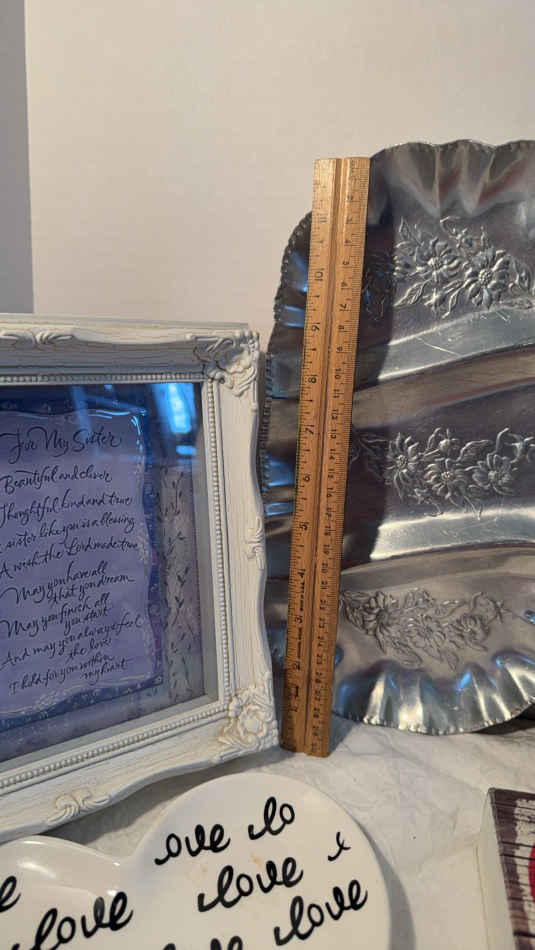 For My Sister
Beautiful and clever
Thoughtful, kind and true
sister like you is a blessing
A wish the Lord made true
May you have all
that you dream
May you finish all
you start
And may you always feel
the love
I hold for you within
my heart
11
10
9
8
7
6
5
4
3
2
love lo
love
love
love